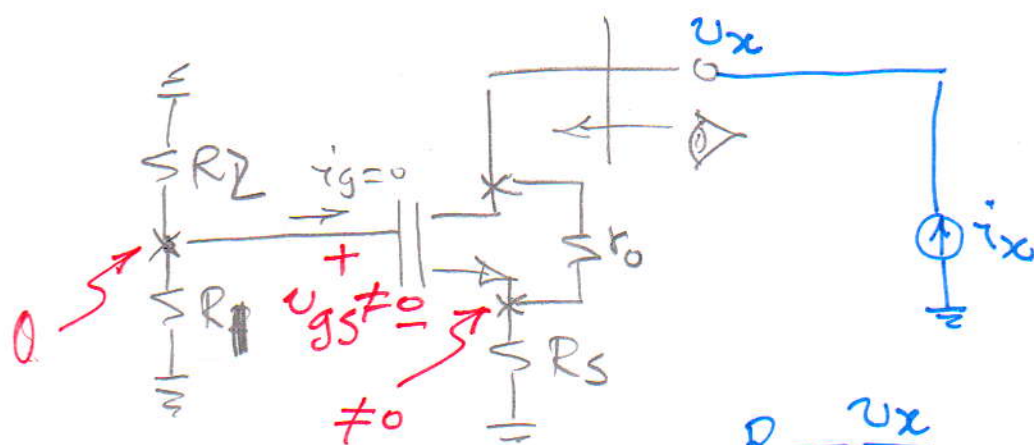 υx
R2
ig=0
+
ro
ix
0
R1
υgs≠0
−
Rs
≠0
R = υx